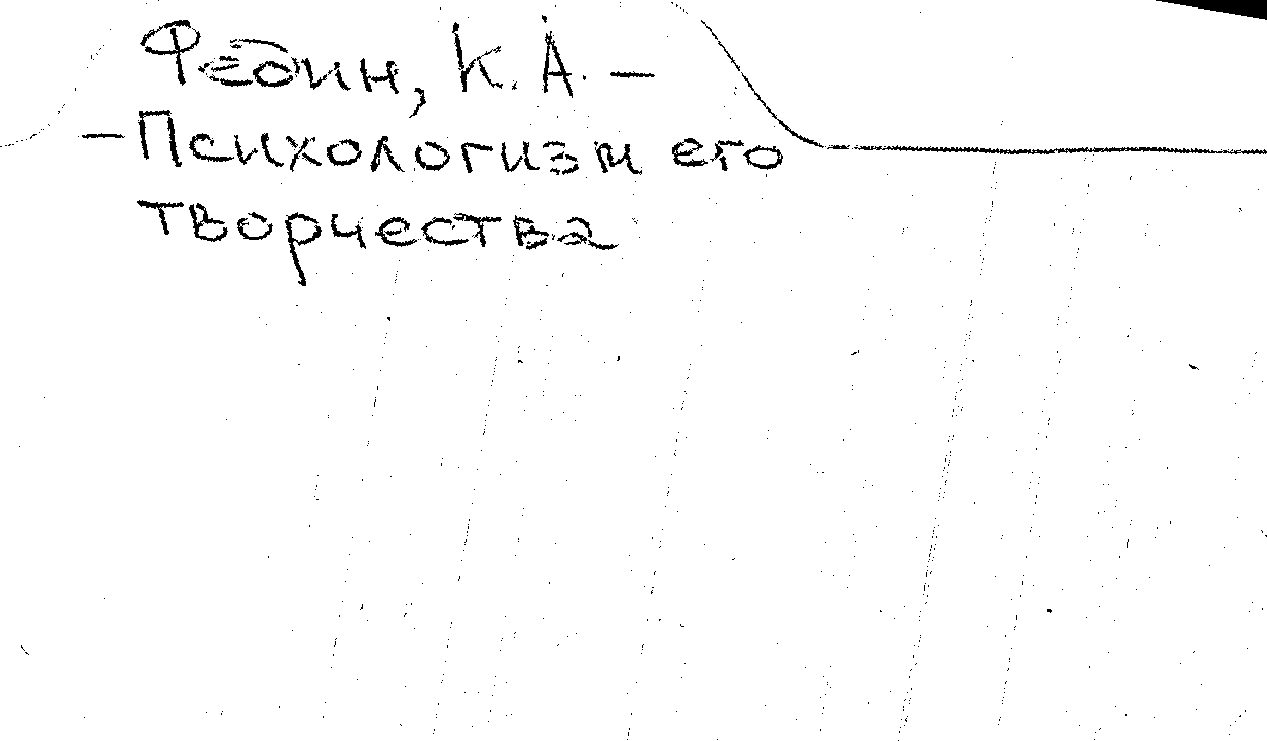 Федин, К. А. —
— Психологизм его
творчества